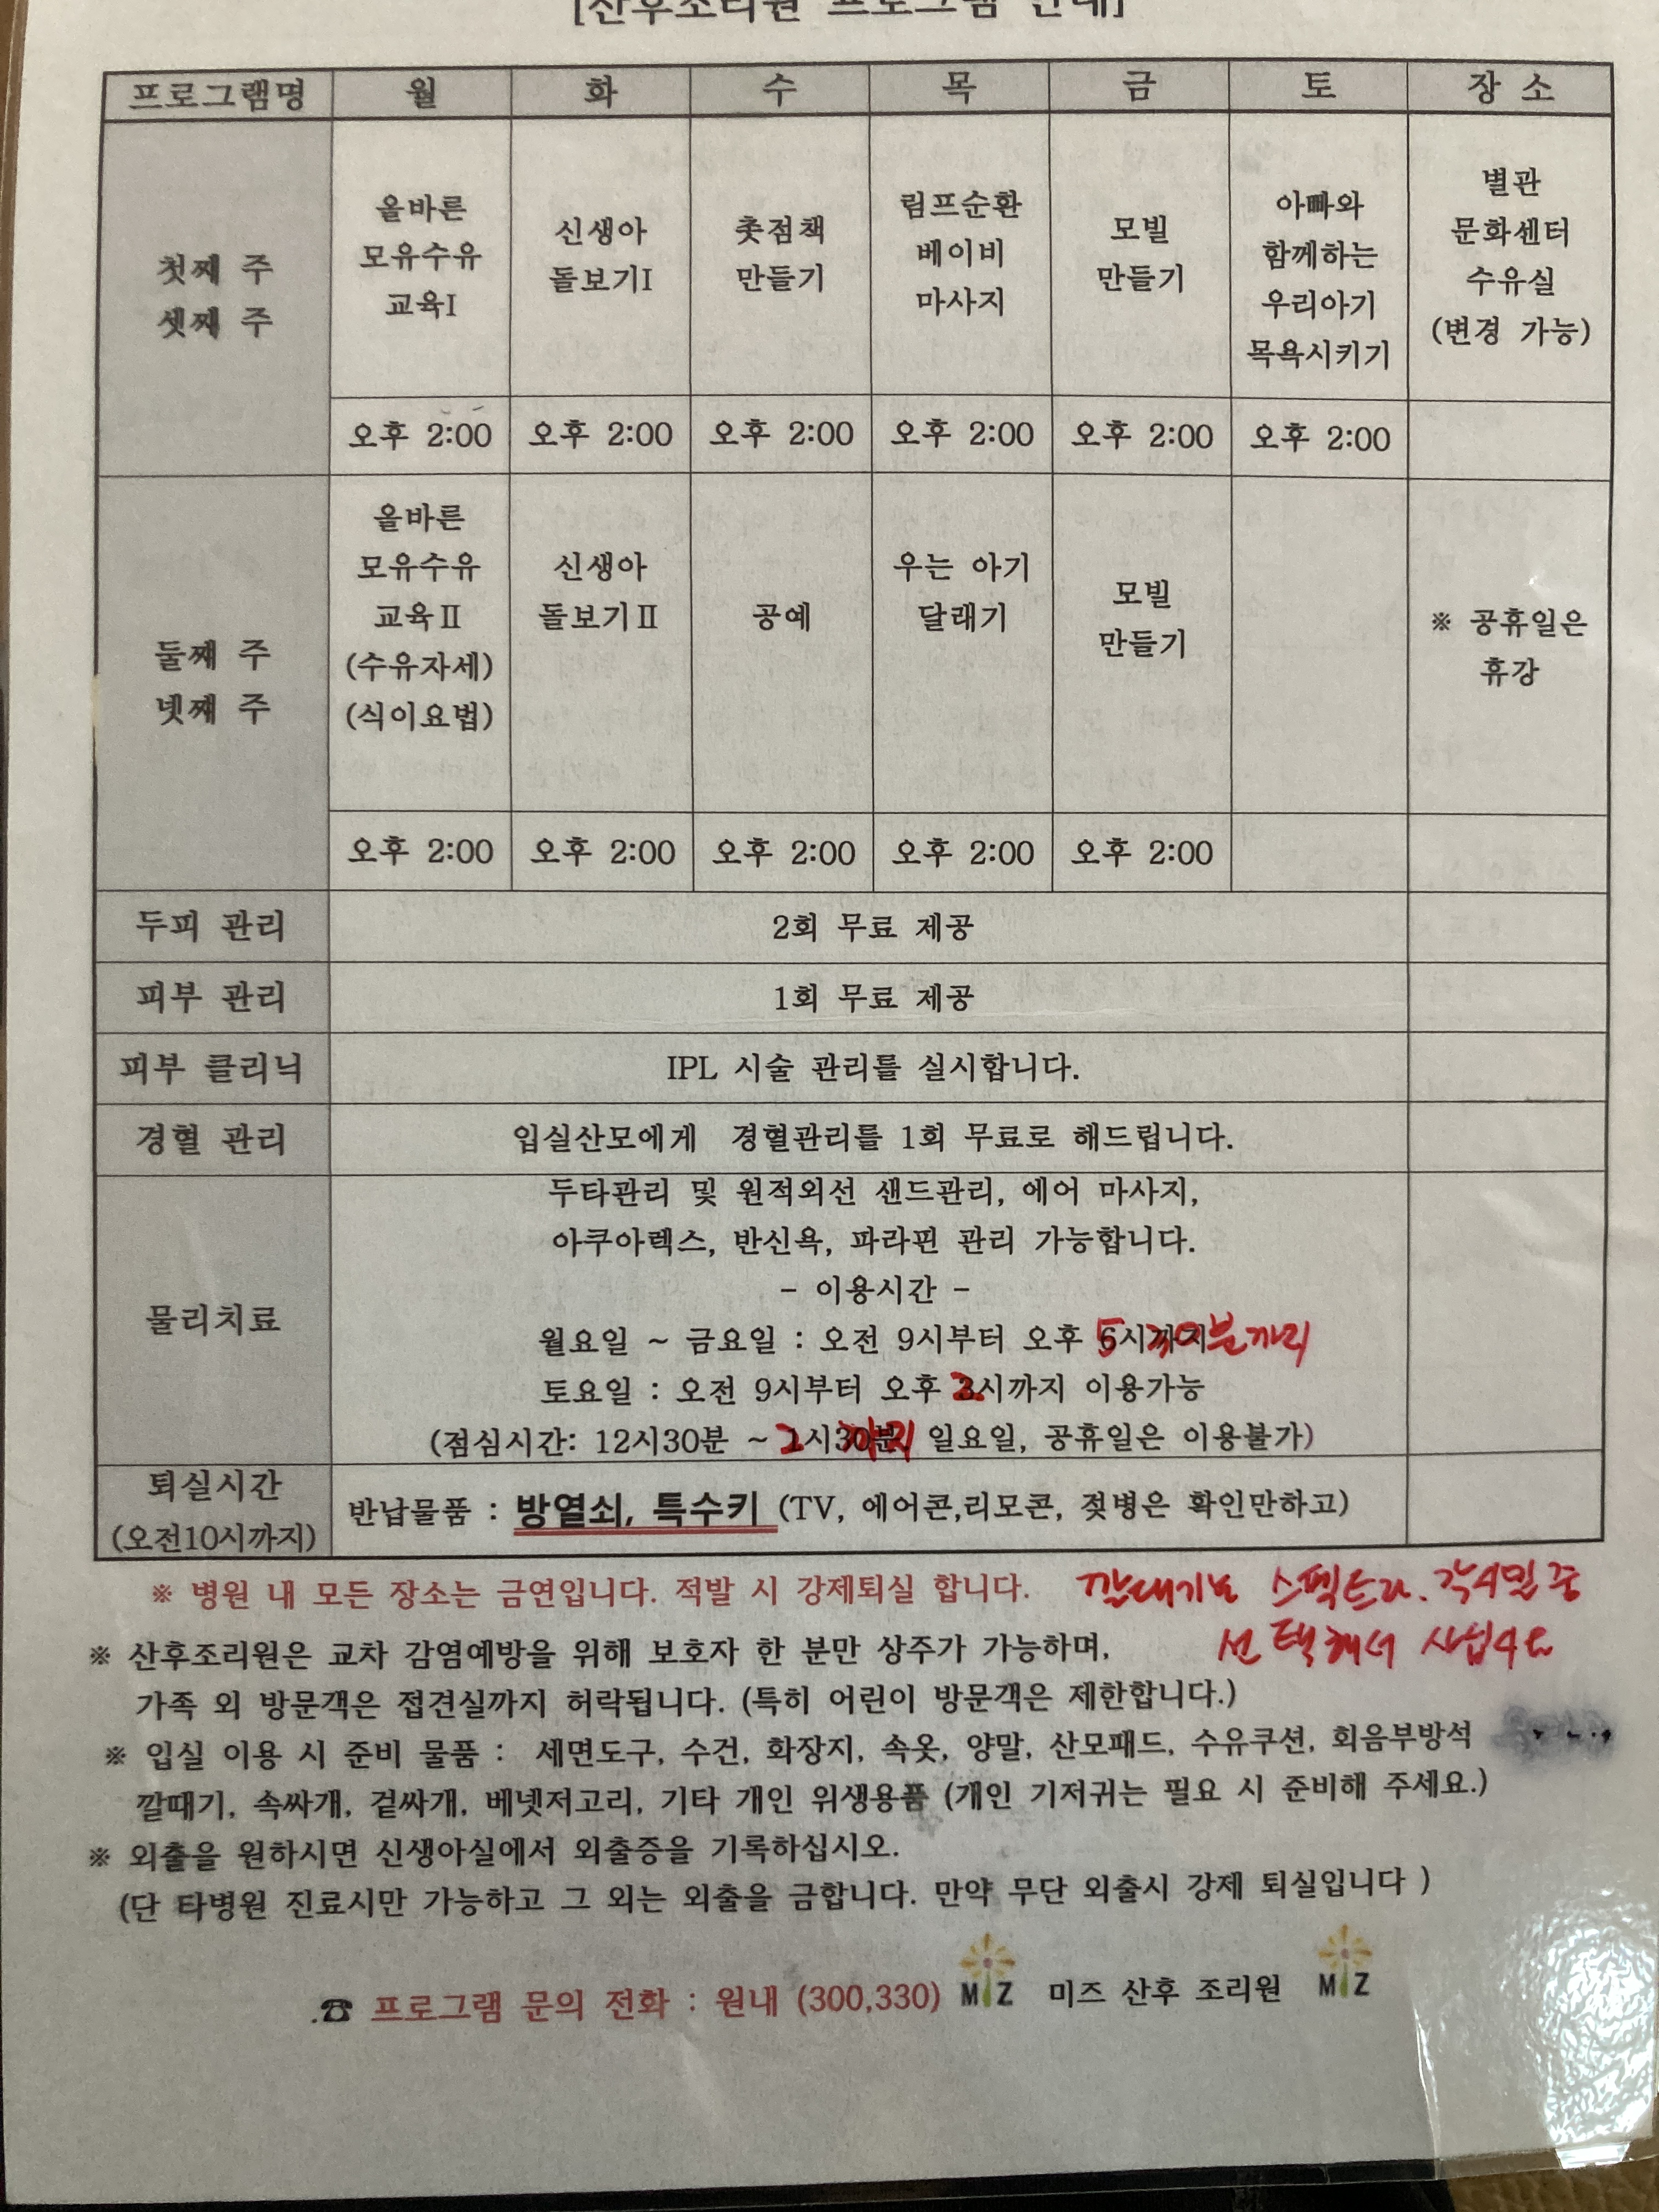 [산후조리원 프로그램 안내]
프로그램명 월 화 수 목 금 토 장 소
첫째 주
셋째 주
올바른
모유수유
교육Ⅰ
신생아
돌보기Ⅰ
촛점책
만들기
림프순환
베이비
마사지
모빌
만들기
아빠와
함께하는
우리아기
목욕시키기
별관
문화센터
수유실
(변경 가능)
오후 2:00 오후 2:00 오후 2:00 오후 2:00 오후 2:00 오후 2:00
둘째 주
넷째 주
올바른
모유수유
교육Ⅱ
(수유자세)
(식이요법)
신생아
돌보기Ⅱ
공예
우는 아기
달래기
모빌
만들기
※ 공휴일은
휴강
오후 2:00 오후 2:00 오후 2:00 오후 2:00 오후 2:00
두피 관리 2회 무료 제공
피부 관리 1회 무료 제공
피부 클리닉 IPL 시술 관리를 실시합니다.
경혈 관리 입실산모에게 경혈관리를 1회 무료로 해드립니다.
물리치료
두타관리 및 원적외선 샌드관리, 에어 마사지,
아쿠아렉스, 반신욕, 파라핀 관리 가능합니다.
- 이용시간 -
월요일 ~ 금요일 : 오전 9시부터 오후 5시 30분까지
토요일 : 오전 9시부터 오후 2시까지 이용가능
(점심시간: 12시30분 ~ 2시까지 일요일, 공휴일은 이용불가)
퇴실시간
(오전10시까지)
반납물품 : 방열쇠, 특수키 (TV, 에어콘,리모콘, 젖병은 확인만하고)
※ 병원 내 모든 장소는 금연입니다. 적발 시 강제퇴실 합니다.
깔대기는 스펙트라.
선택해서 사십시요
※ 산후조리원은 교차 감염예방을 위해 보호자 한 분만 상주가 가능하며,
가족 외 방문객은 접견실까지 허락됩니다. (특히 어린이 방문객은 제한합니다.)
※ 입실 이용 시 준비 물품 : 세면도구, 수건, 화장지, 속옷, 양말, 산모패드, 수유쿠션, 회음부방석
깔때기, 속싸개, 겉싸개, 베넷저고리, 기타 개인 위생용품 (개인 기저귀는 필요 시 준비해 주세요.)
※ 외출을 원하시면 신생아실에서 외출증을 기록하십시오.
(단 타병원 진료시만 가능하고 그 외는 외출을 금합니다. 만약 무단 외출시 강제 퇴실입니다 )
☎ 프로그램 문의 전화 : 원내 (300,330) MIZ 미즈 산후 조리원 MIZ